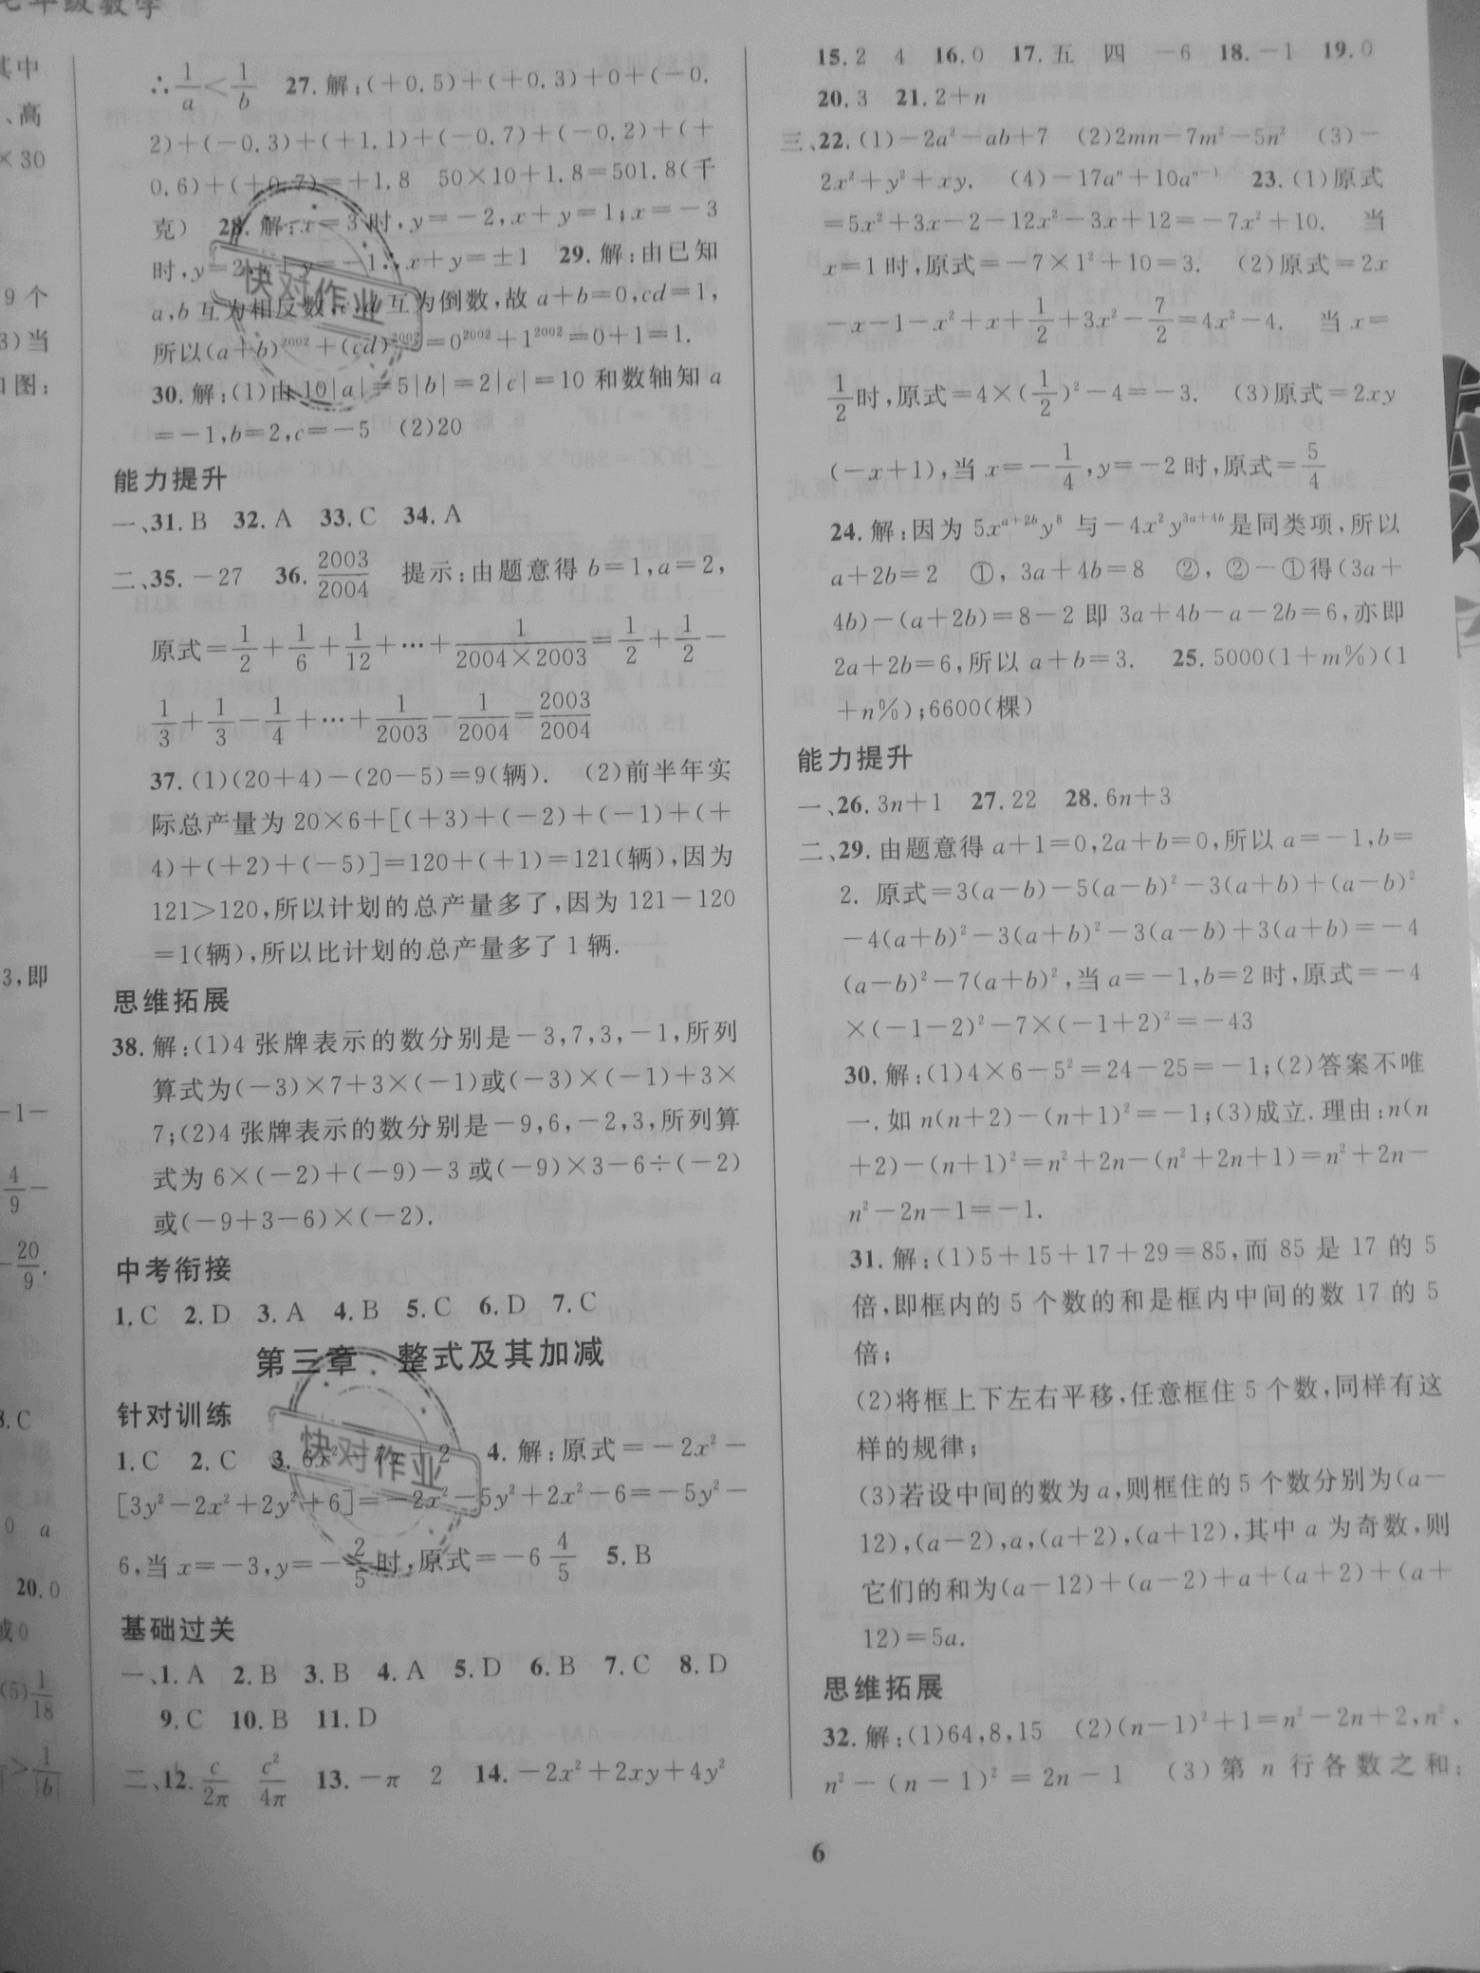 七年级数学
其中
、高
×30
9个
3)当
图:
3,即
-1-
4/9-
-20/9.
8.C
0 a
20.0
或0
(5)1/18
>1/|b|
∴1/a<1/b 27.解:(+0.5)+(+0.3)+0+(-0.
2)+(-0.3)+(+1.1)+(-0.7)+(-0.2)+(+
0.6)+(+0.7)=+1.8 50×10+1.8=501.8(千
克) 28.解:x=3时,y=-2,x+y=1;x=-3
时,y=2,x+y=-1∴x+y=±1 29.解:由已知
a,b互为相反数,c,d互为倒数,故a+b=0,cd=1,
所以(a+b)²⁰⁰²+(cd)²⁰⁰²=0²⁰⁰²+1²⁰⁰²=0+1=1.
30.解:(1)由10|a|=5|b|=2|c|=10和数轴知a
=-1,b=2,c=-5 (2)20
能力提升
一、31.B 32.A 33.C 34.A
二、35.-27 36.2003/2004 提示:由题意得b=1,a=2,
原式=1/2+1/6+1/12+…+1/(2004×2003)=1/2+1/2-
1/3+1/3-1/4+…+1/2003-1/2004=2003/2004
37.(1)(20+4)-(20-5)=9(辆). (2)前半年实
际总产量为20×6+[(+3)+(-2)+(-1)+(+
4)+(+2)+(-5)]=120+(+1)=121(辆),因为
121>120,所以计划的总产量多了,因为121-120
=1(辆),所以比计划的总产量多了1辆.
思维拓展
38.解:(1)4张牌表示的数分别是-3,7,3,-1,所列
算式为(-3)×7+3×(-1)或(-3)×(-1)+3×
7;(2)4张牌表示的数分别是-9,6,-2,3,所列算
式为6×(-2)+(-9)-3或(-9)×3-6÷(-2)
或(-9+3-6)×(-2).
中考衔接
1.C 2.D 3.A 4.B 5.C 6.D 7.C
第三章 整式及其加减
针对训练
1.C 2.C 3.6x² +2 4.解:原式=-2x²-
[3y²-2x²+2y²+6]=-2x²-5y²+2x²-6=-5y²-
6,当x=-3,y=-2/5时,原式=-6 4/5 5.B
基础过关
一、1.A 2.B 3.B 4.A 5.D 6.B 7.C 8.D
9.C 10.B 11.D
二、12.c/2π c²/4π 13.-π 2 14.-2x²+2xy+4y²
快对作业
快对作业
15.2 4 16.0 17.五 四 -6 18.-1 19.0
20.3 21.2+n
三、22.(1)-2a²-ab+7 (2)2mn-7m²-5n² (3)-
2x²+y²+xy. (4)-17aⁿ+10aⁿ⁻¹ 23.(1)原式
=5x²+3x-2-12x²-3x+12=-7x²+10. 当
x=1时,原式=-7×1²+10=3. (2)原式=2x
-x-1-x²+x+1/2+3x²-7/2=4x²-4. 当x=
1/2时,原式=4×(1/2)²-4=-3. (3)原式=2xy
(-x+1),当x=-1/4,y=-2时,原式=5/4
24.解:因为5xᵃ⁺²ᵇy⁸与-4x²y³ᵃ⁺⁴ᵇ是同类项,所以
a+2b=2 ①,3a+4b=8 ②,②-①得(3a+
4b)-(a+2b)=8-2即3a+4b-a-2b=6,亦即
2a+2b=6,所以a+b=3. 25.5000(1+m%)(1
+n%);6600(棵)
能力提升
一、26.3n+1 27.22 28.6n+3
二、29.由题意得a+1=0,2a+b=0,所以a=-1,b=
2. 原式=3(a-b)-5(a-b)²-3(a+b)+(a-b)²
-4(a+b)²-3(a+b)²-3(a-b)+3(a+b)=-4
(a-b)²-7(a+b)²,当a=-1,b=2时,原式=-4
×(-1-2)²-7×(-1+2)²=-43
30.解:(1)4×6-5²=24-25=-1;(2)答案不唯
一.如n(n+2)-(n+1)²=-1;(3)成立.理由:n(n
+2)-(n+1)²=n²+2n-(n²+2n+1)=n²+2n-
n²-2n-1=-1.
31.解:(1)5+15+17+29=85,而85是17的5
倍,即框内的5个数的和是框内中间的数17的5
倍;
(2)将框上下左右平移,任意框住5个数,同样有这
样的规律;
(3)若设中间的数为a,则框住的5个数分别为(a-
12),(a-2),a,(a+2),(a+12),其中a为奇数,则
它们的和为(a-12)+(a-2)+a+(a+2)+(a+
12)=5a.
思维拓展
32.解:(1)64,8,15 (2)(n-1)²+1=n²-2n+2,n²,
n²-(n-1)²=2n-1 (3)第n行各数之和:
6